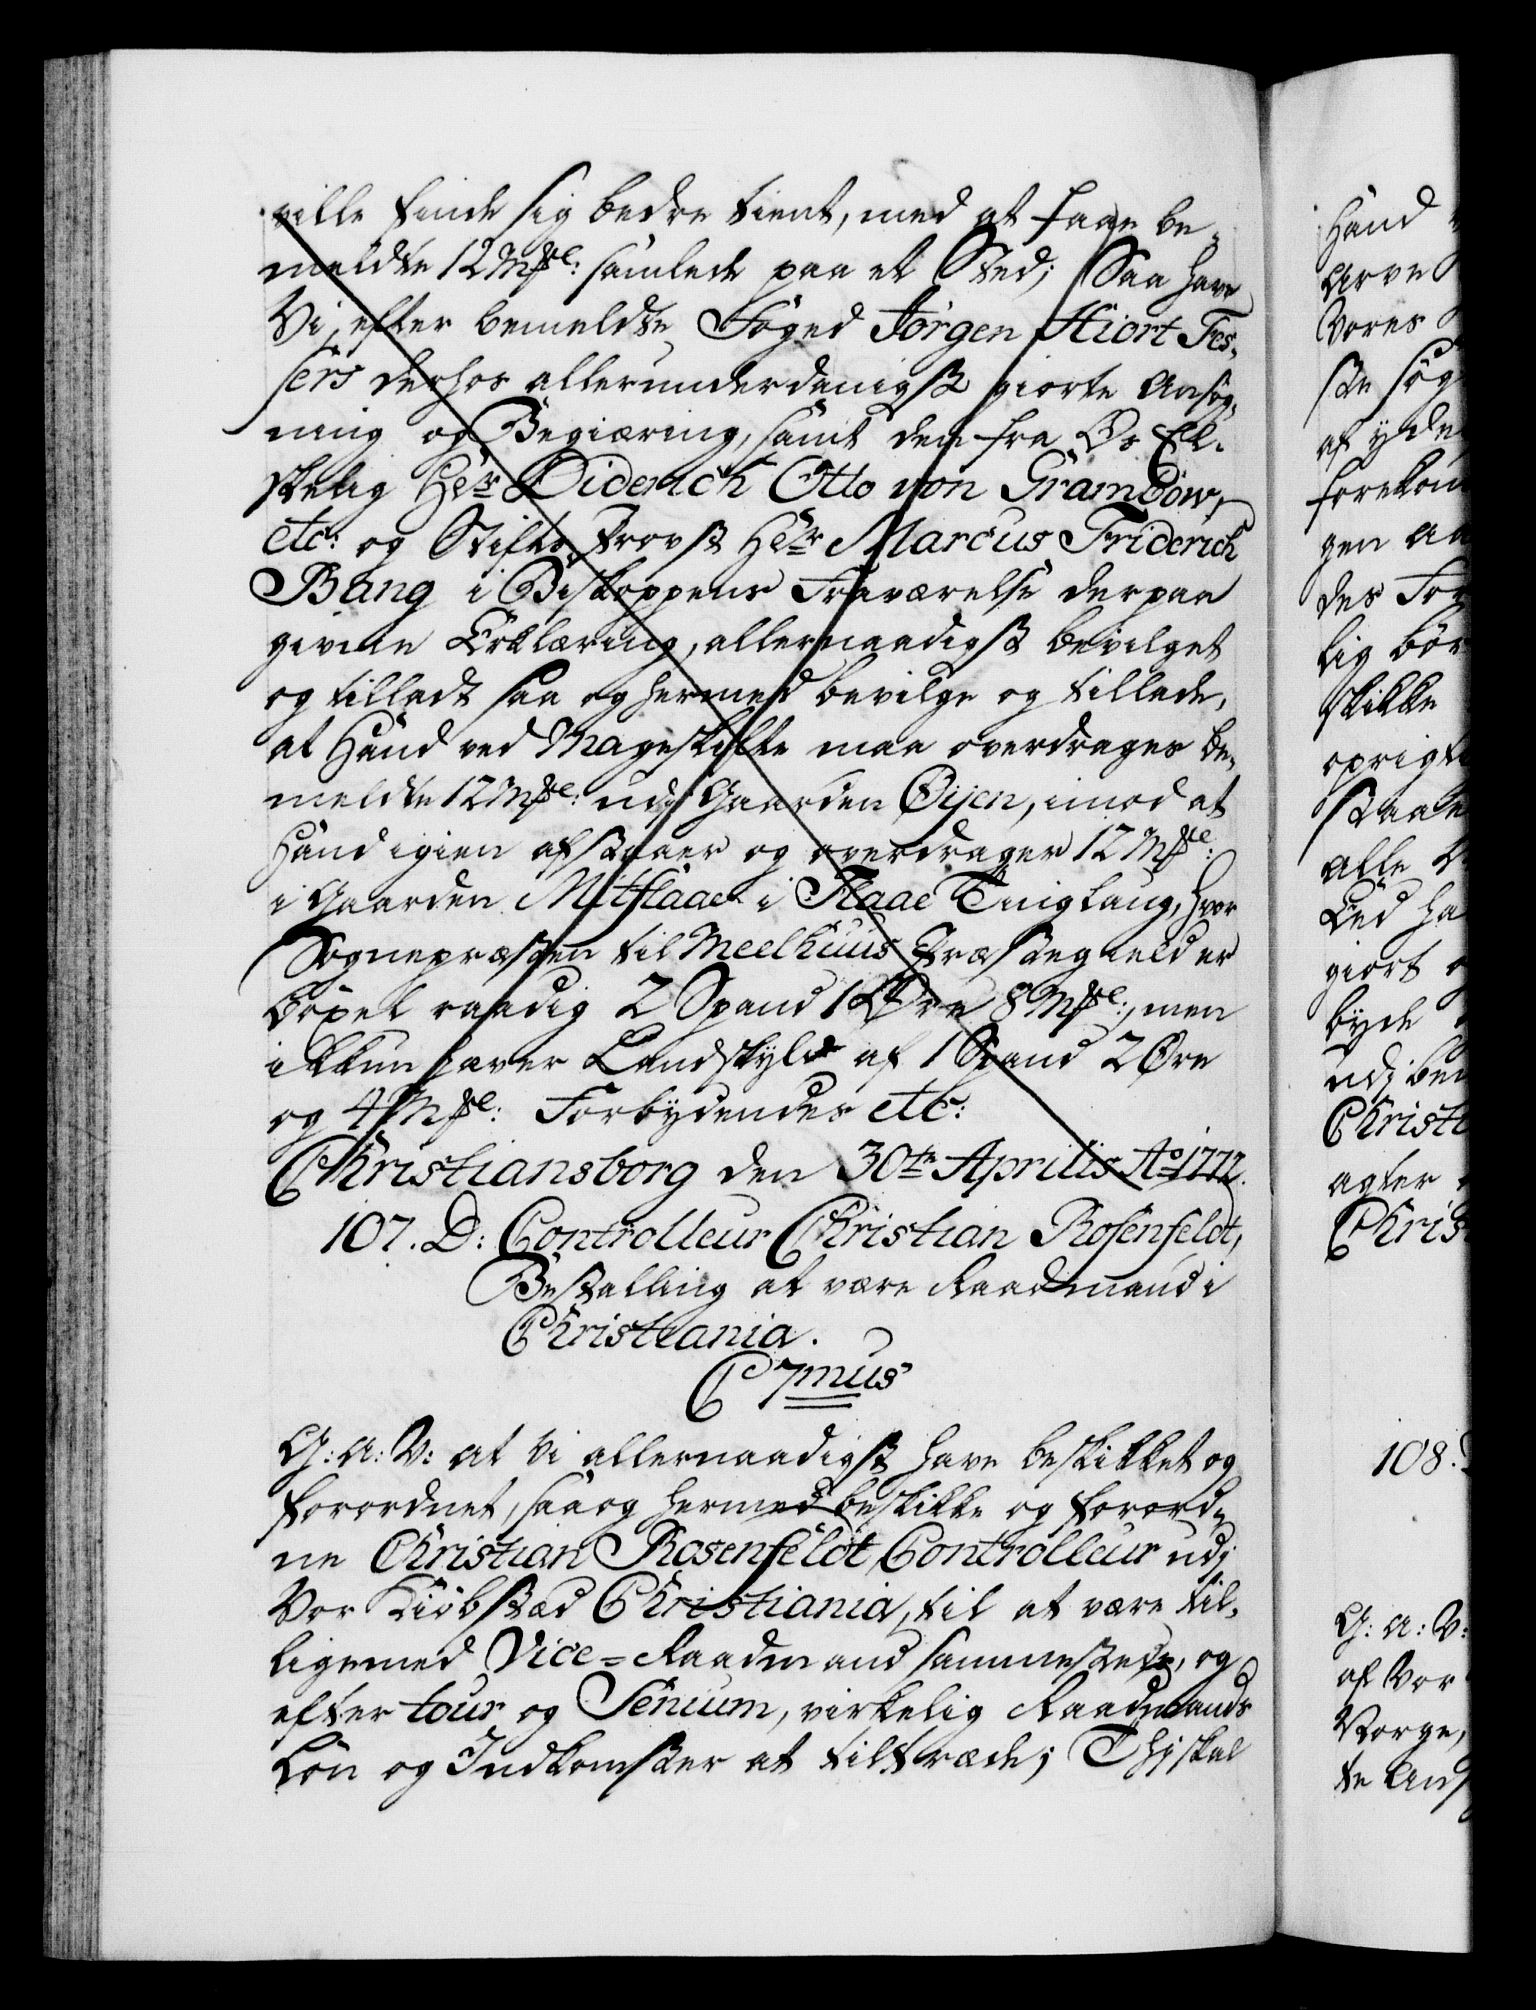 ville finde sig bedre tient, med at faae be„
meldte 12 Mkl: samlede paa et Sted; Saa have
Vi, efter bemeldte Foged Jørgen Hiort Fes„
sers derhos allerunderdanigst giorte Ansøg„
ning og Begiæring, samt den fra Os El„
skelig Herr Diderich Otto von Grambow,
etc: og Stifts Provst Herr Marcus Friderich
Bang i Biskoppens Fraværelse derpaa
givene Erklæring, allernaadigst bevilget
og tilladt saa og hermed bevilge og tillade,
at Hånd ved Mageskifte maa overdrages be„
meldte 12 Mkl: udj Gaarden Øijen, imod at
Hånd igien afstaaer og overdrager 12 Mkl:
i Gaarden Mitflaae i Flaae Tinglaug, hvor
Sognepræsten til Meelhuus Præstegield er
Bøxel raadig 2 Spand 1 Øre 8 Mkl:, men
ikkun haver Landskyld af 1 Spand 2 Øre
og 4 Mkl: Forbydendes etc:
Christiansborg den 30te Aprilis Ao 1772.
107. D: Controlleur Christian Rosenfeldt,
Bestalling at være Raadmand i
Christiania.
C 7mus
G: A: V: at Vi allernaadigst have beskikket og
forordnet, saa og hermed beskikke og forord„
ne Christian Rosenfeldt Controlleur udj
Vor Kiøbstæd Christiania, til at være til„
ligemed Vice=Raadmand sammestede, og
efter tour og Senium, virkelig Raadmands
Løn og Indkomster at tiltræde; Thj skal
Hånd
Arve
Vores
ste søg
af yde
forekom
gen
des For
lig bør
skikke
oprigt
staae
alle V
Eed ha
giort
byde
udj bem
Christi
agter
Chris
108.
G: A: V:
af Vor
Norge,
te Ans